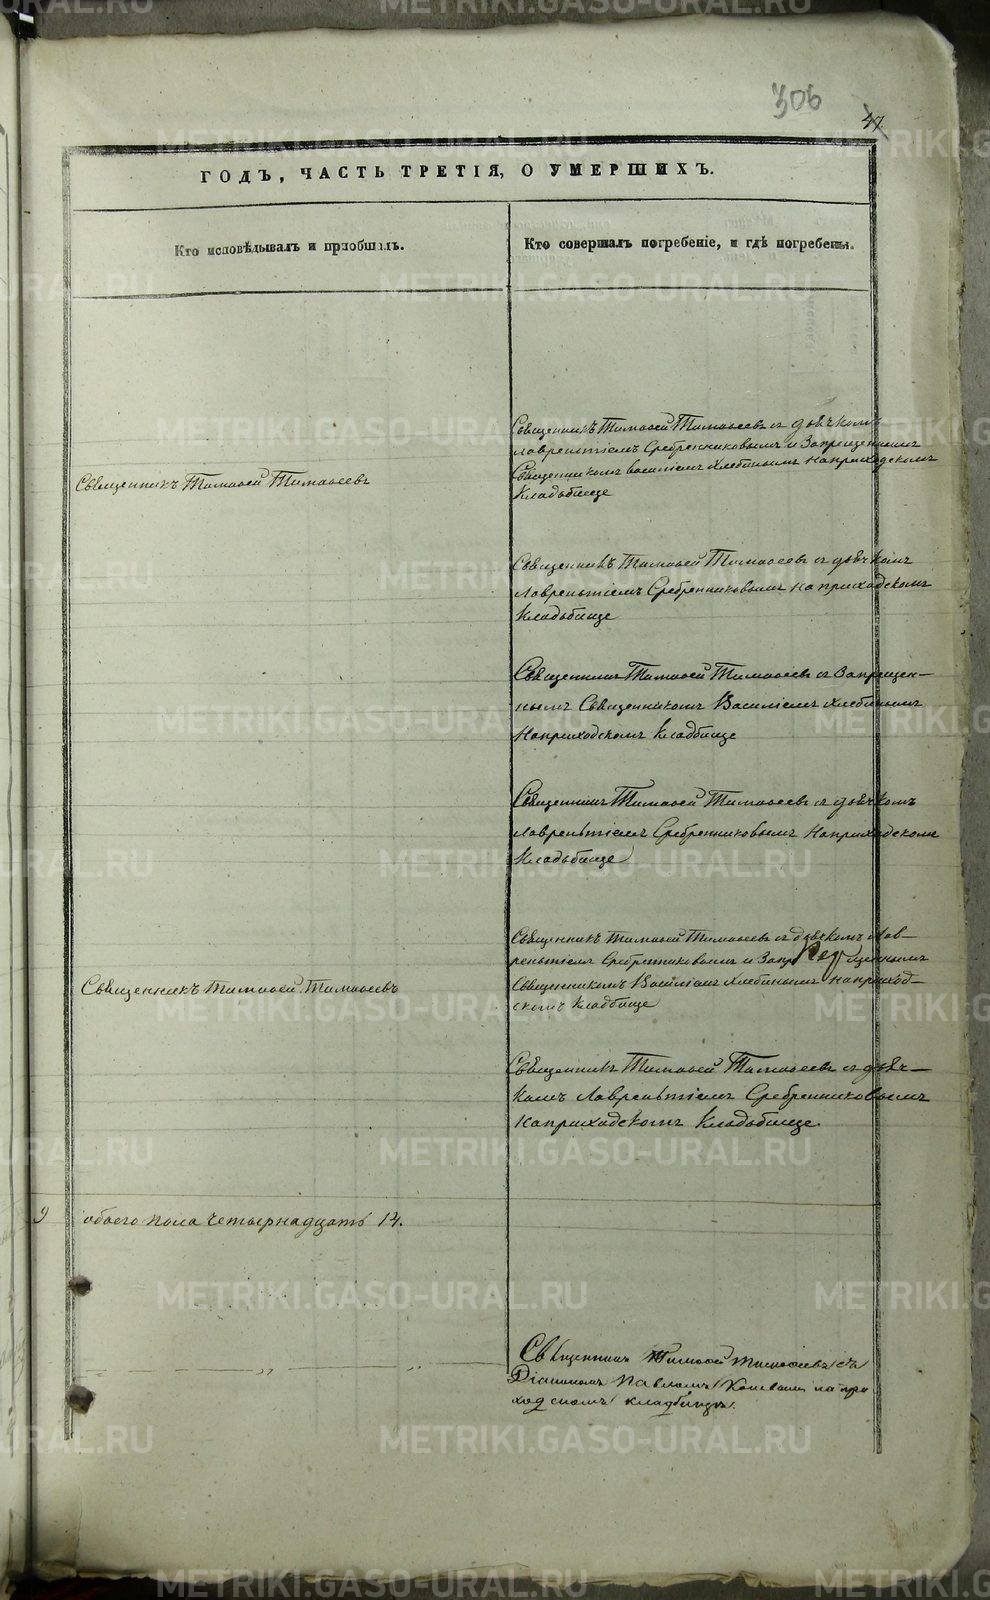 306
47
ГОДЪ, ЧАСТЬ ТРЕТІЯ, О УМЕРШИХЪ.
Кто исповѣдывалъ и пріобщалъ.
Кто совершалъ погребеніе, и гдѣ погребены.
Священникъ Тимоѳей Тимоѳеевъ съ дьячкомъ
Лаврентіемъ Сребренниковымъ и Запрещеннымъ
Священникомъ Василіемъ Хлебинымъ на приходскомъ
Кладьбище
Священникъ Тимоѳей Тимоѳеевъ
Священникъ Тимоѳей Тимоѳеевъ съ дьячкомъ
Лаврентіемъ Сребренниковымъ на приходскомъ
Кладьбище
Священникъ Тимоѳей Тимоѳеевъ съ Запрещен-
нымъ Священникомъ Василіемъ Хлебинымъ
На приходскомъ Кладбище
Священникъ Тимоѳей Тимоѳеевъ съ дьячкомъ
Лаврентіемъ Сребренниковымъ На приходскомъ
Кладьбище
Священникъ Тимоѳей Тимоѳеевъ съ дьячкомъ Лав-
рентіемъ Сребренниковымъ и Запрещеннымъ
Священникомъ Василіемъ Хлебинымъ на приход-
скомъ Кладбище
Священникъ Тимоѳей Тимоѳеевъ
Священникъ Тимоѳей Тимоѳеевъ съ дьяч-
комъ Лаврентіемъ Сребренниковымъ
На приходскомъ Кладьбище.
9 обоего пола четырнадцать 14.
Священникъ Тимоѳей Тимоѳеевъ съ
Діакономъ Павломъ на при
ходскомъ кладбищѣ.
METRIKI.GASO-URAL.RU